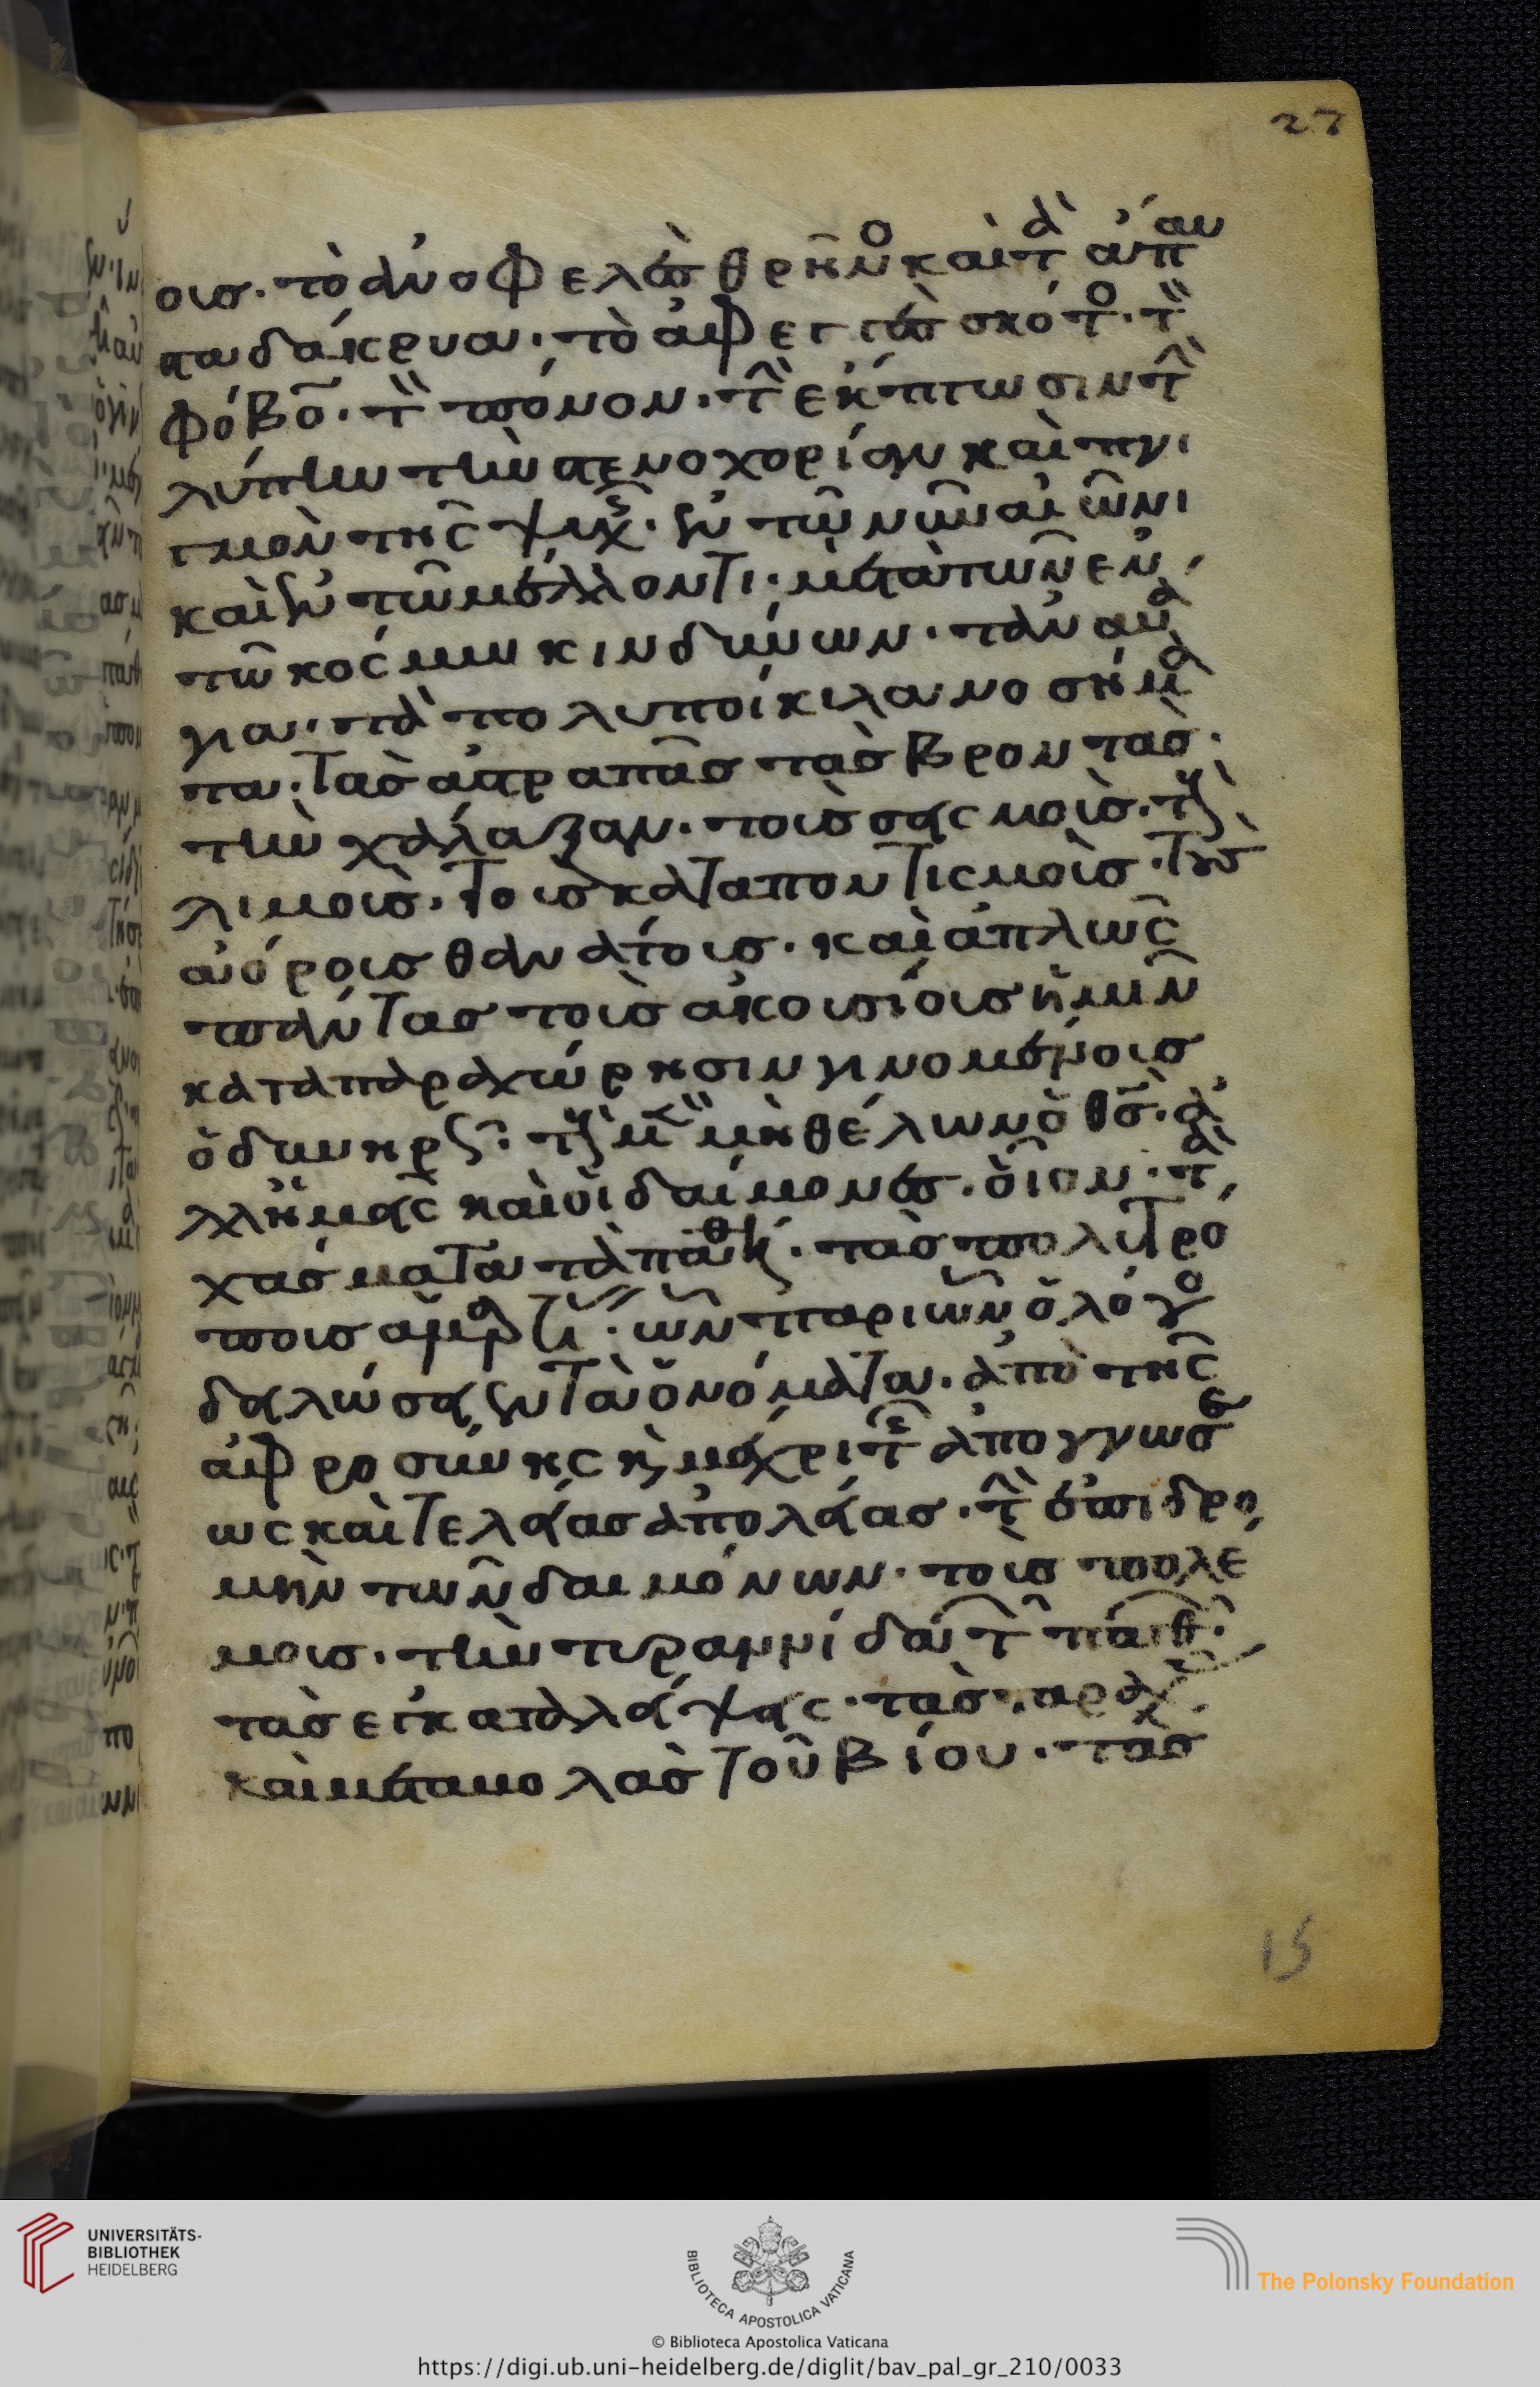 27
οις· τὸ ἀνοφελὲς θρῆνο καὶ τὰ ἄπαυ
στα δάκρυα· τὸ ἀφεγγὲς σκότο· τὸν
φόβον· τὸν πόνον· τὴν ἔκπτωσιν τὴν
λύπην τὴν στενοχορίαν καὶ πνι
γμὸν τῆς ψυχῆς· ἐν τῶ νῦν αἰῶνι
καὶ ἐν τῶ μέλλοντι· μετὰ τῶν ἐν
τῶ κόσμω κινδύνων· τὰ ναυά
για· τὰ πολυποίκιλα νοσήμα
τα· τὰς ἀστραπὰς τὰς βροντὰς·
τὴν χάλαζαν· τοὺς σεισμοὺς· τοὺς
λιμοὺς· τοὺς καταποντισμοὺς· τοὺς
ἀόρους θανάτους· καὶ ἁπλῶς
πάντας τοὺς ἀκουσίους ἡμῖν
κατὰ παραχώρησιν γινομένοις
ὀδυνηροῖς· μὴ θέλων ὁ θσ· ἀ
λλ' ἡμεῖς καὶ οἱ δαίμονες· οἷον· τὰ
χάσματα τὰ πάθη· τὰς πολυτρό
πους ἁμαρτίας· ὧν παριὼν ὁ λόγο
δηλώσει ἐν τὰ ὀνόματα· ἀπὸ τῆς
ἀφροσύνης καὶ μέχρι τῆς ἀπογνώσε
ως καὶ τελείας ἀπολείας· τὴν ἐπιδρο
μὴν τῶν δαιμόνων· τοὺς πολέ
μους· τὴν τυραννίδα τῶν παθῶν·
τὰς ἐγκαταλείψεις· τὰς ταραχὰς
καὶ μεταβολὰς τοῦ βίου· τὰς
15
UNIVERSITÄTS-
BIBLIOTHEK
HEIDELBERG
BIBLIOTECA APOSTOLICA VATICANA
The Polonsky Foundation
© Biblioteca Apostolica Vaticana
https://digi.ub.uni-heidelberg.de/diglit/bav_pal_gr_210/0033